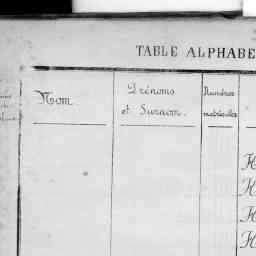 TABLE ALPHABE
Nom
Prénoms
et Surnom.
Numéros
matricules
H
H
H
H